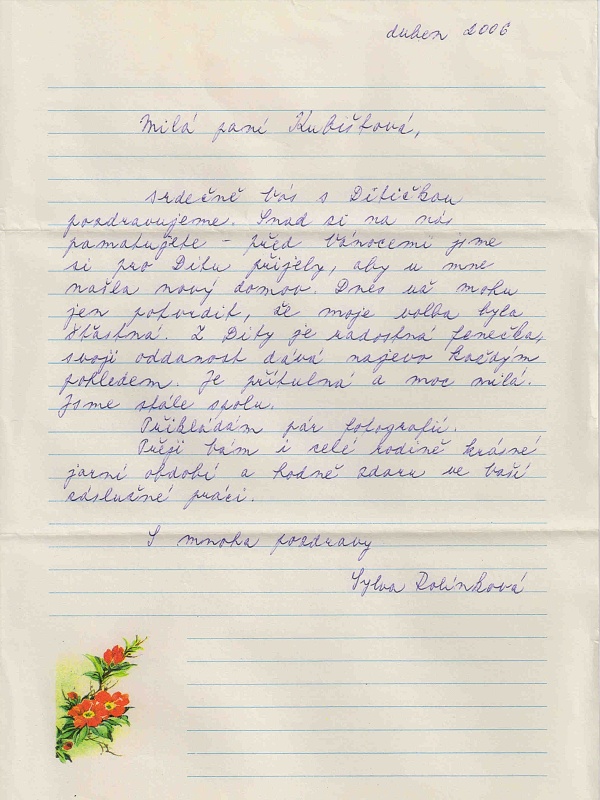 duben 2006
Milá paní Kubištová,
srdečně Vás s Ditičkou
pozdravujeme. Snad si na nás
pamatujete – před Vánocemi jsme
si pro Ditu přijely, aby u mne
našla nový domov. Dnes už mohu
jen potvrdit, že moje volba byla
šťastná. Z Dity je radostná fenečka,
svoji oddanost dává najevo každým
pohledem. Je přítulná a moc milá.
Jsme stále spolu.
Přikládám pár fotografií.
Přeji Vám i celé rodině krásné
jarní období a hodně zdaru ve Vaší
záslužné práci.
S mnoha pozdravy
Sylva Rolínková